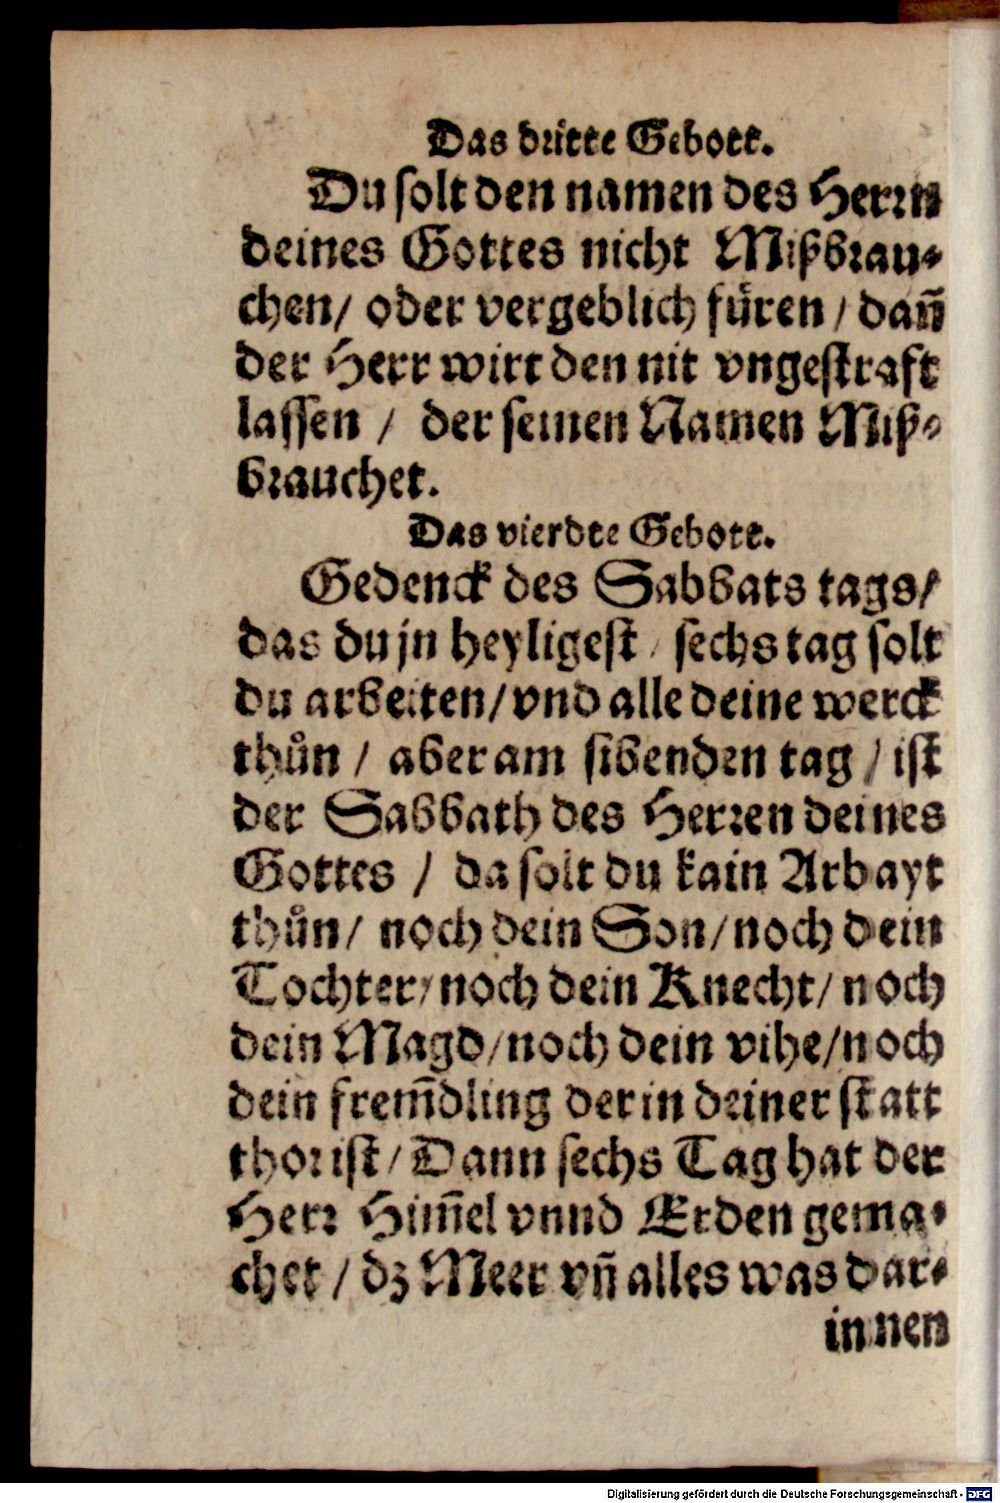 Das dritte Gebott.
Du solt den namen des Herrn
deines Gottes nicht Mißbrau⸗
chen/ oder vergeblich füren / dañ
der Herr wirt den nit vngestraft
lassen / der seinen Namen Miß⸗
brauchet.
Das vierdte Gebott.
Gedenck des Sabbats tags/
das du jn heyligest / sechs tag solt
du arbeiten/ vnd alle deine werck
thůn / aber am sibenden tag / ist
der Sabbath des Herren deines
Gottes / da solt du kain Arbayt
thůn/ noch dein Son/ noch dein
Tochter/ noch dein Knecht/ noch
dein Magd/ noch dein vihe/ noch
dein frem̃dling der in deiner statt
thor ist/ Dann sechs Tag hat der
Herr Him̃el vnnd Erden gema⸗
chet / dz Meer vñ alles was dar⸗
innen
Digitalisierung gefördert durch die Deutsche Forschungsgemeinschaft - DFG